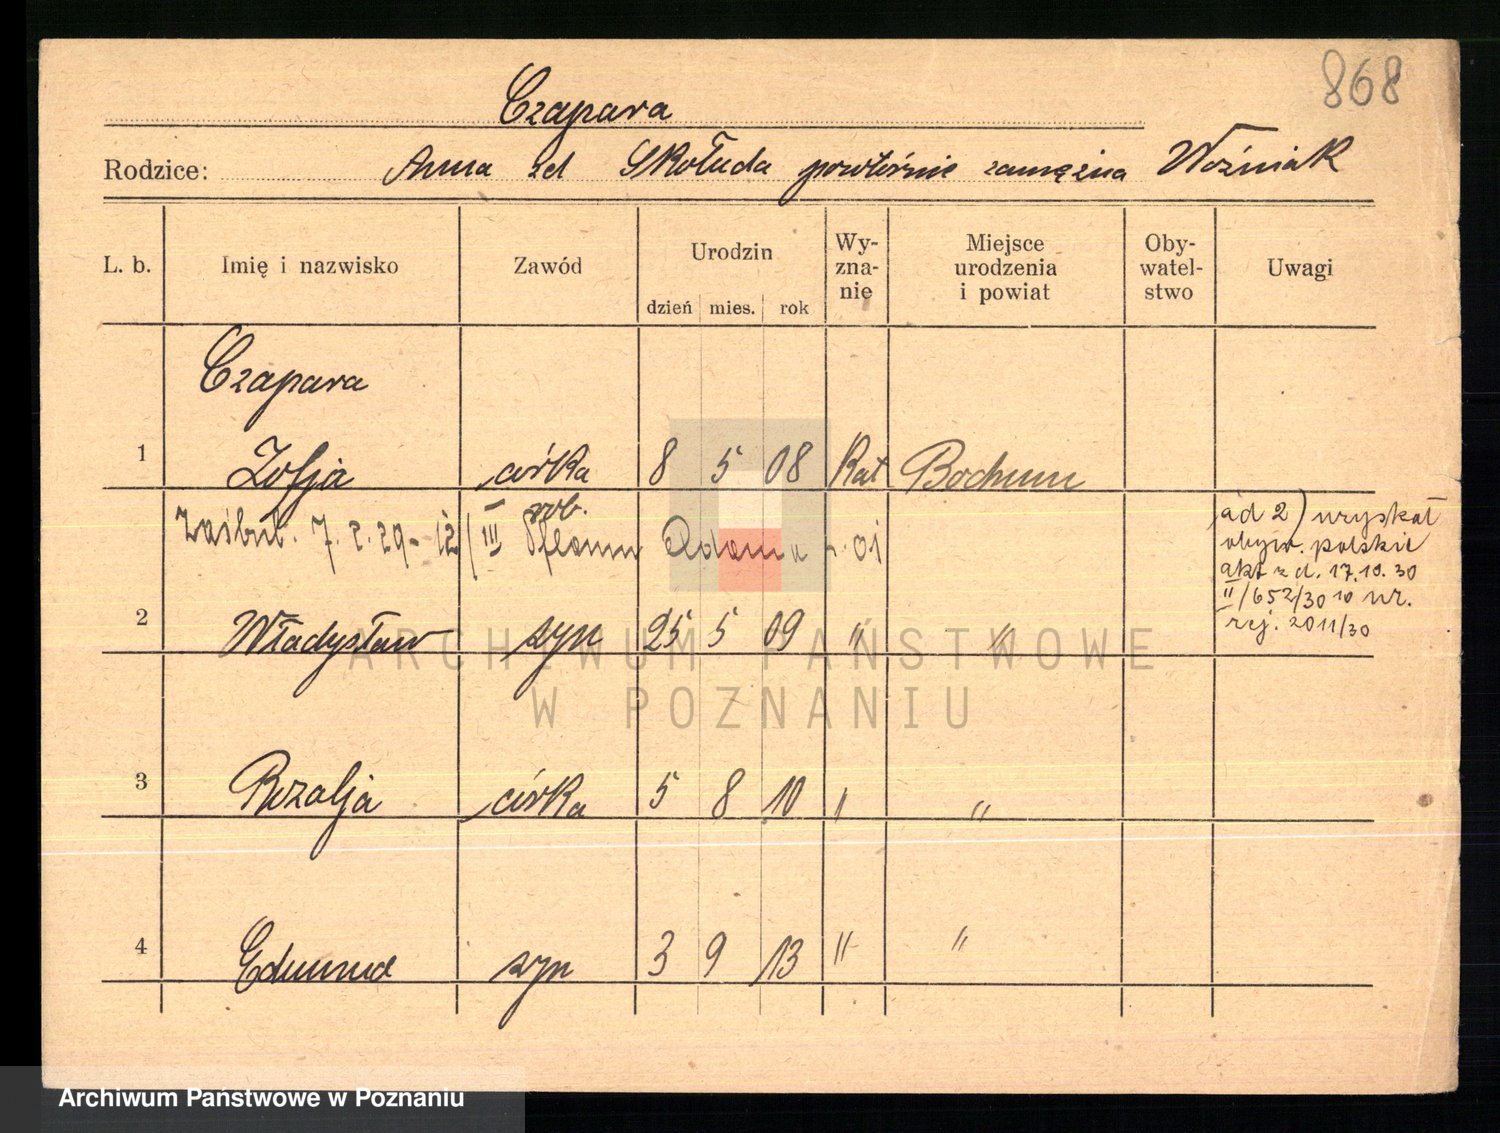 868
Czapara
Rodzice: Anna zd Skołuda powtórnie zamężna Woźniak
L. b. Imię i nazwisko Zawód Urodzin dzień mies. rok Wy-zna-nie Miejsce urodzenia i powiat Oby-watel-stwo Uwagi
Czapara
1 Zofja córka 8 5 08 Kat Bochum
rob.
Zaślub. 7. 2. 29 - 12/III Adama r. 01
ad 2) uzyskał
obyw. polskie
akt z d. 17.10.30
II/652/30 10 nr.
rej. 2011/30
2 Władysław syn 25 5 09 " "
ARCHIWUM PAŃSTWOWE
W POZNANIU
3 Rozalja córka 5 8 10 " "
4 Edmund syn 3 9 13 " "
Archiwum Państwowe w Poznaniu